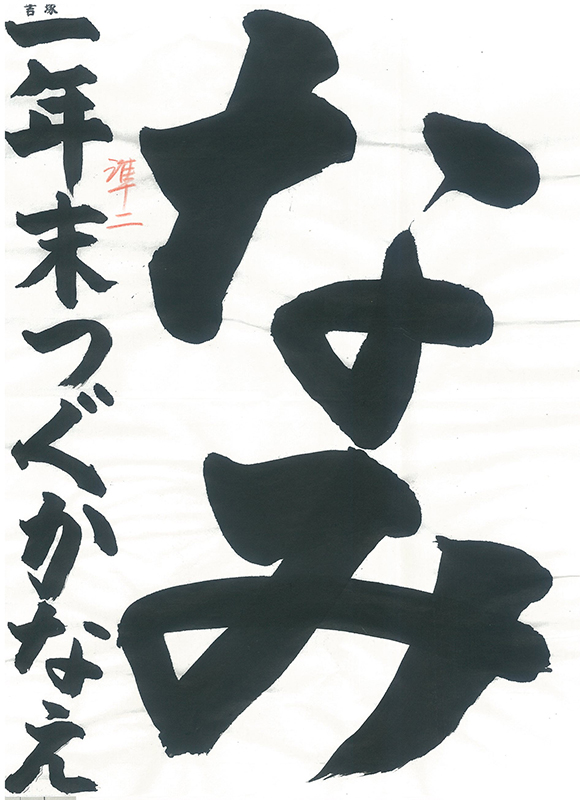 なみ
一年末つぐかなえ
準二
吉塚